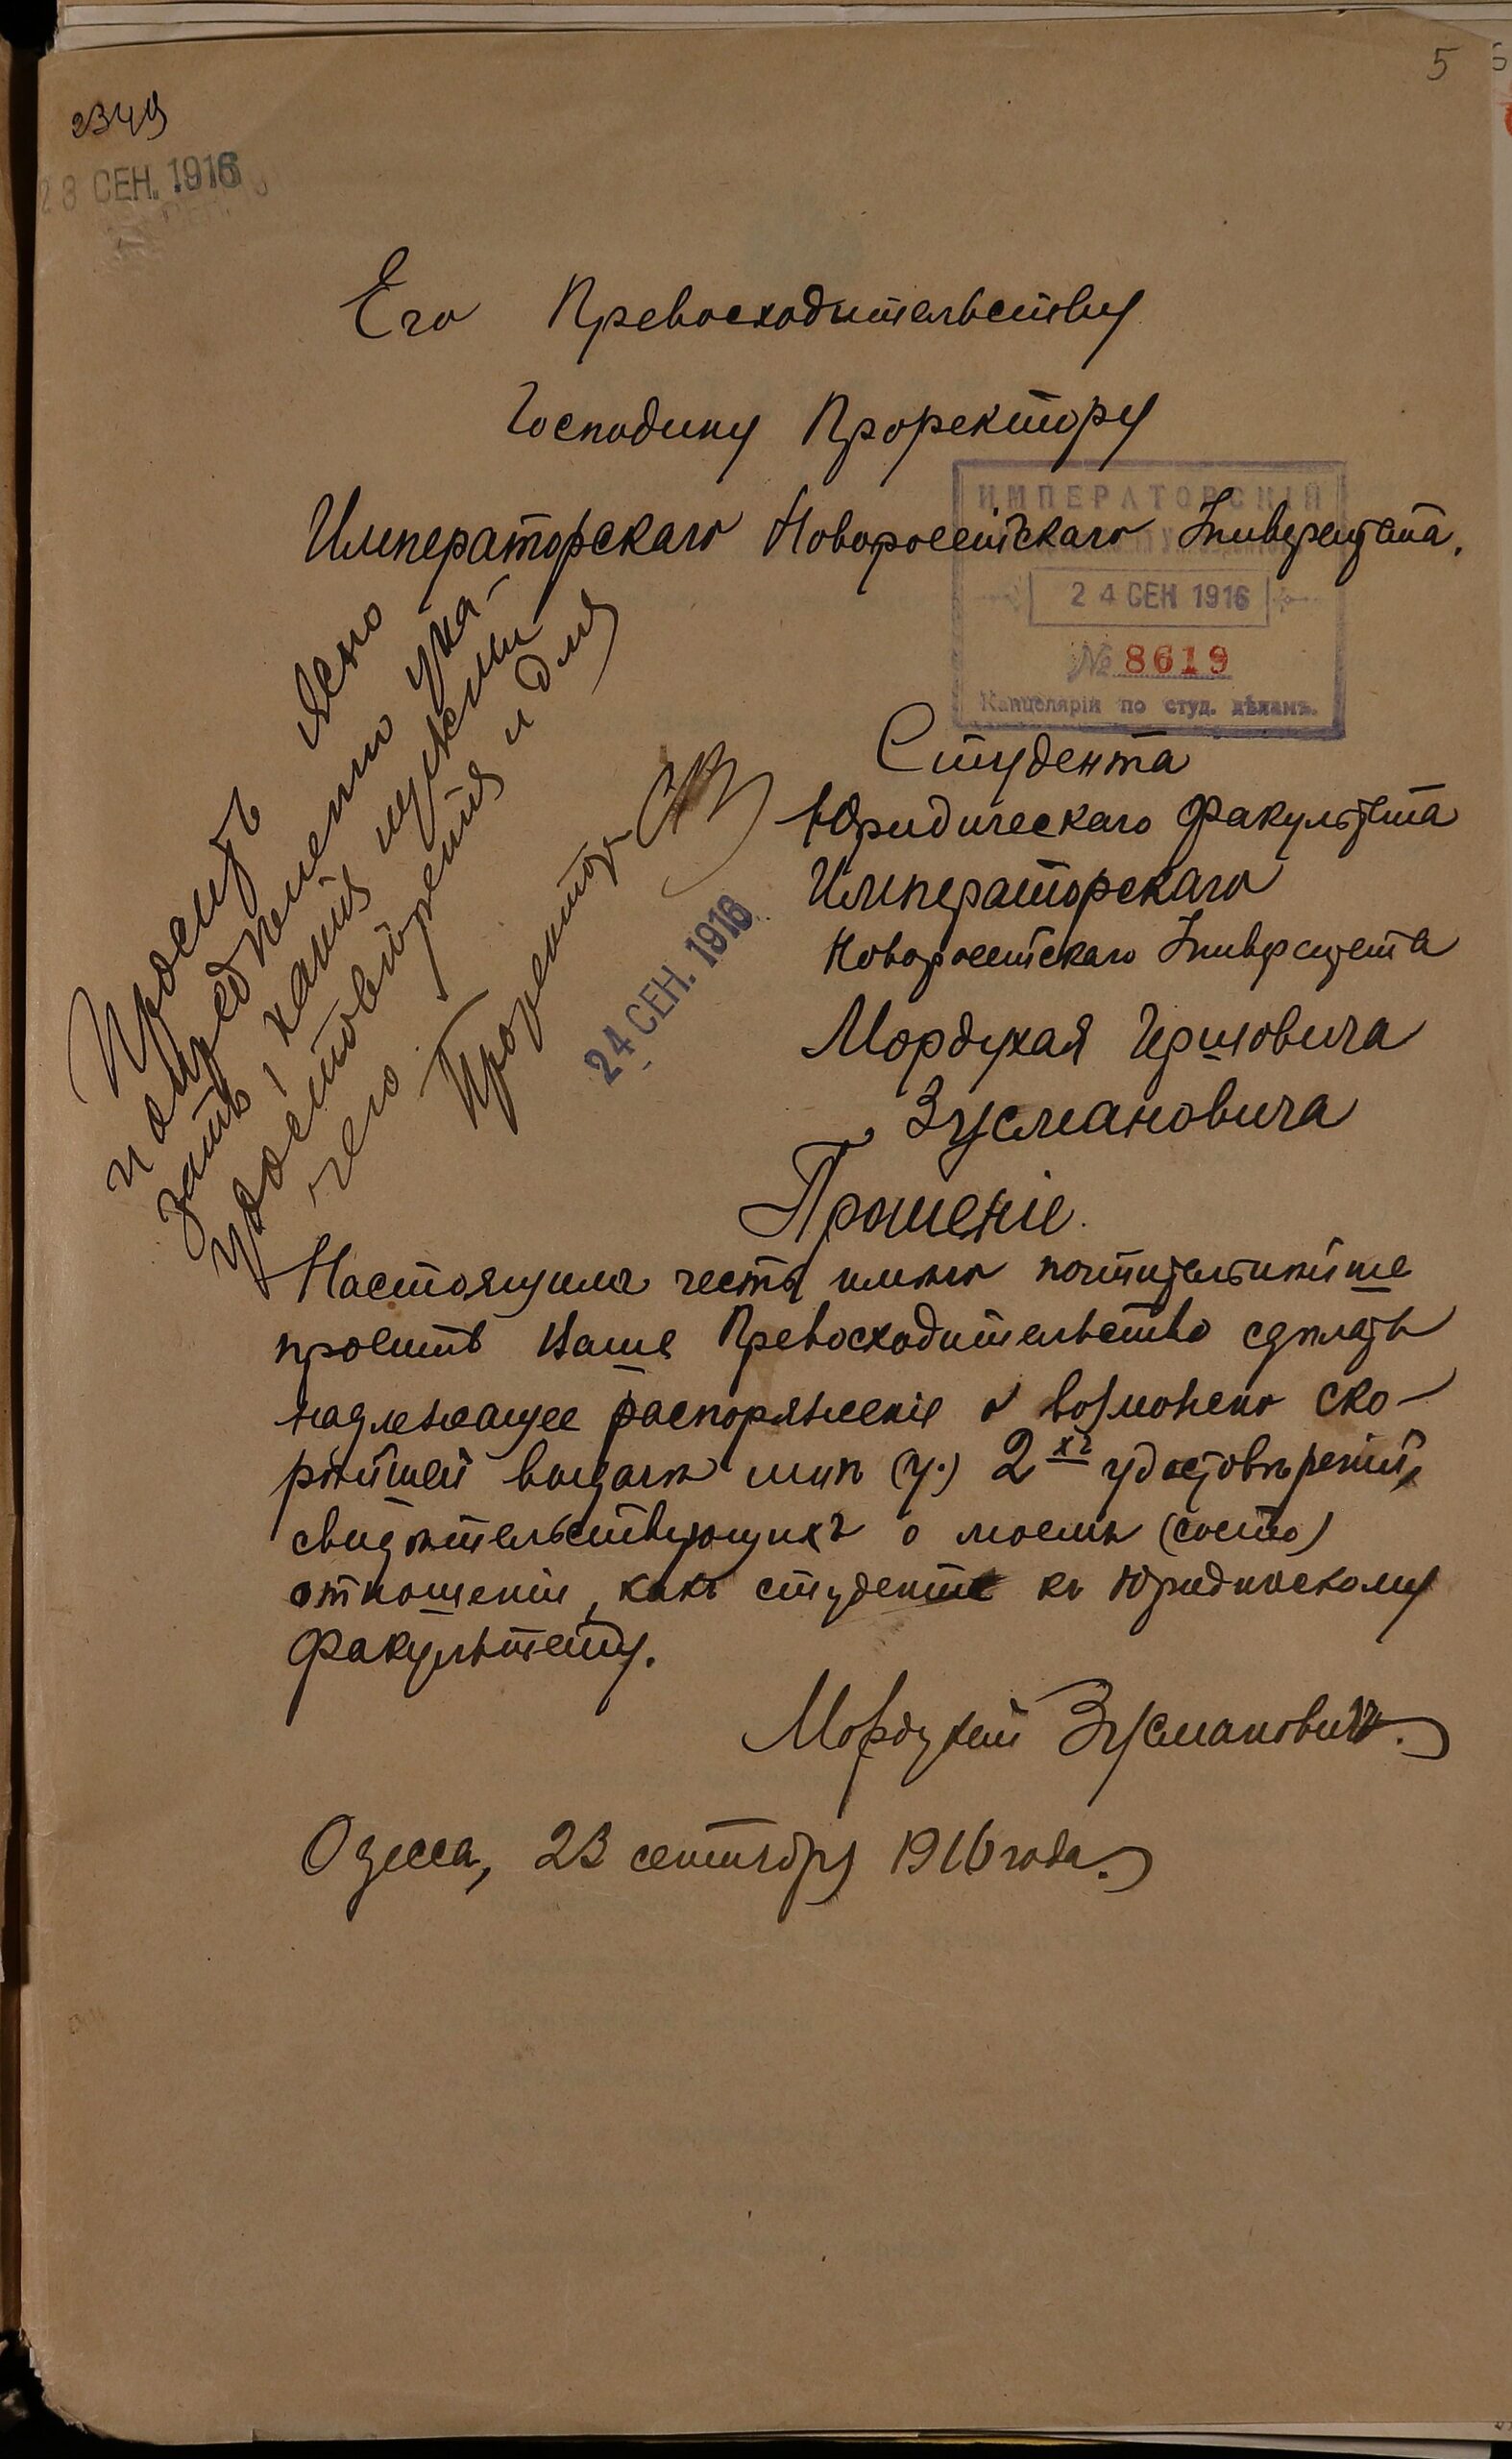 5
2349
28 СЕН. 1916
Его Превосходительству
Господину Проректору
Императорскаго Новороссійскаго Университета.
ИМПЕРАТОРСКІЙ
24 СЕН 1916
№ 8619
Канцелярія по студ. дѣламъ.
Просить ясно
и опредѣленно ука-
зать, какія нужны
удостовѣренія и для
чего
Проректор
24 СЕН. 1916
Студента
Юридическаго Факультета
Императорскаго
Новороссійскаго Университета
Мордухая Гершовича
Зусмановича
Прошеніе.
Настоящимъ честь имѣю почтительнѣйше
просить Ваше Превосходительство сдѣлать
надлежащее распоряженіе о возможно ско-
рѣйшей выдачѣ мнѣ (у.) 2хъ удостовѣреній,
свидѣтельствующихъ о моемъ (состо)
отношеніи, какъ студента къ Юридическому
Факультету.
Мордухай Зусмановичъ.
Одесса, 23 сентября 1916 года.